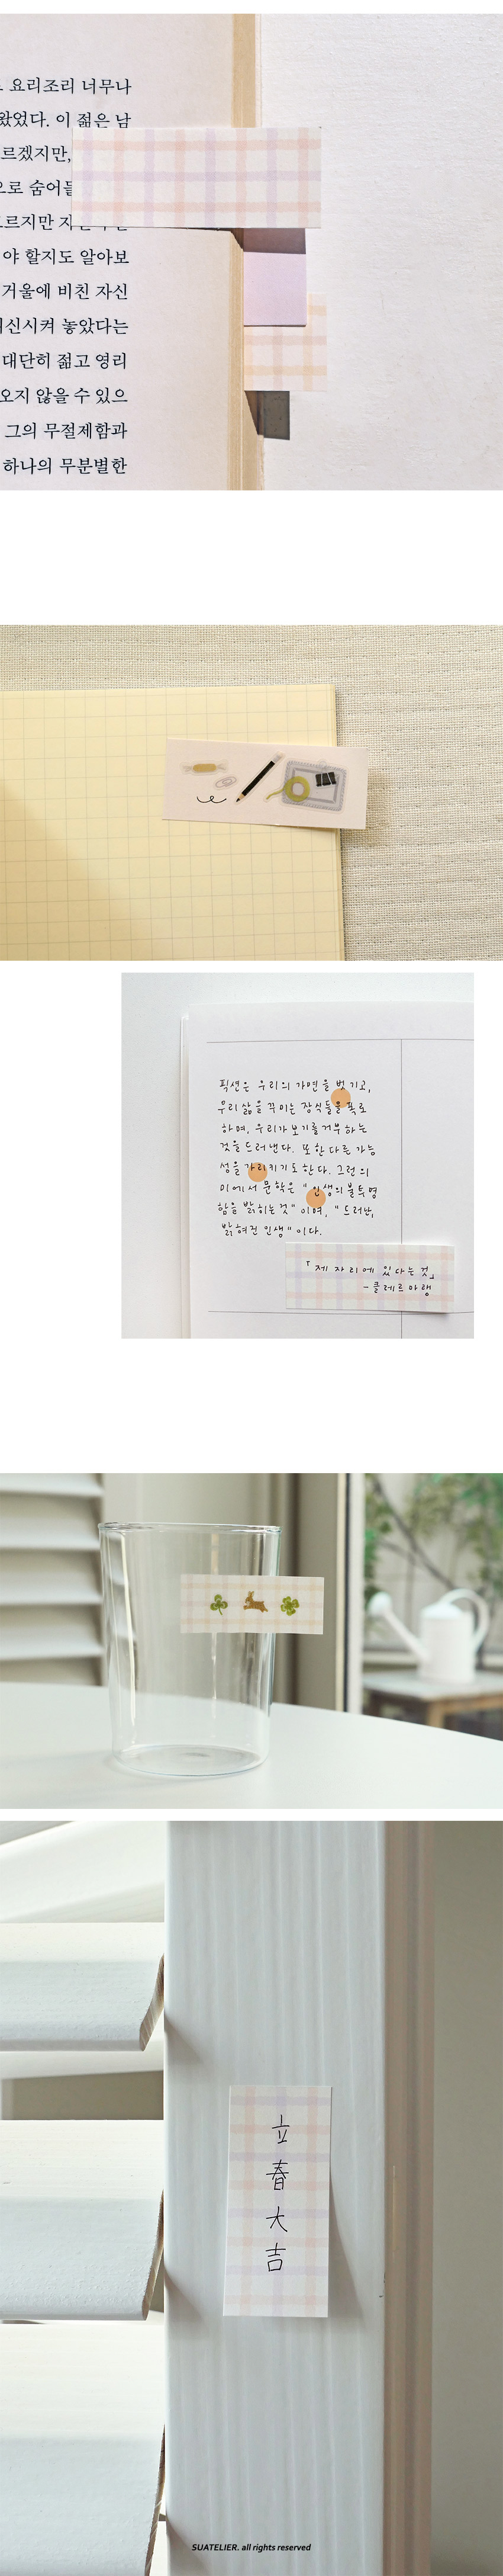 요리조리 너무나
왔었다. 이 젊은 남
르겠지만,
으로 숨어들
르지만
야 할지도 알아보
거울에 비친 자신
신시켜 놓았다는
대단히 젊고 영리
오지 않을 수 있으
그의 무절제함과
하나의 무분별한
픽션은 우리의 가면을 벗기고,
우리 삶을 꾸미는 장식들을 폭로
하며, 우리가 보기를 거부하는
것을 드러낸다. 또한 다른 가능
성을 가리키기도 한다. 그런 의
미에서 문학은 "인생의 불투명
함을 밝히는 것"이며, "드러난,
밝혀진 인생"이다.
「제 자리에 있다는 것」
- 클레르 마랭
立
春
大
吉
SUATELIER. all rights reserved